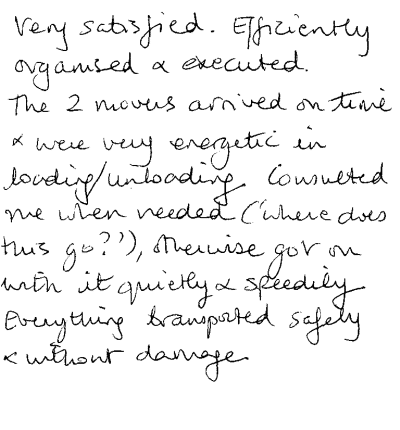 Very satisfied. Efficiently
organised & executed.
The 2 movers arrived on time
& were very energetic in
loading/unloading. Consulted
me when needed ('where does
this go?'), otherwise got on
with it quietly & speedily
Everything transported safely
& without damage.